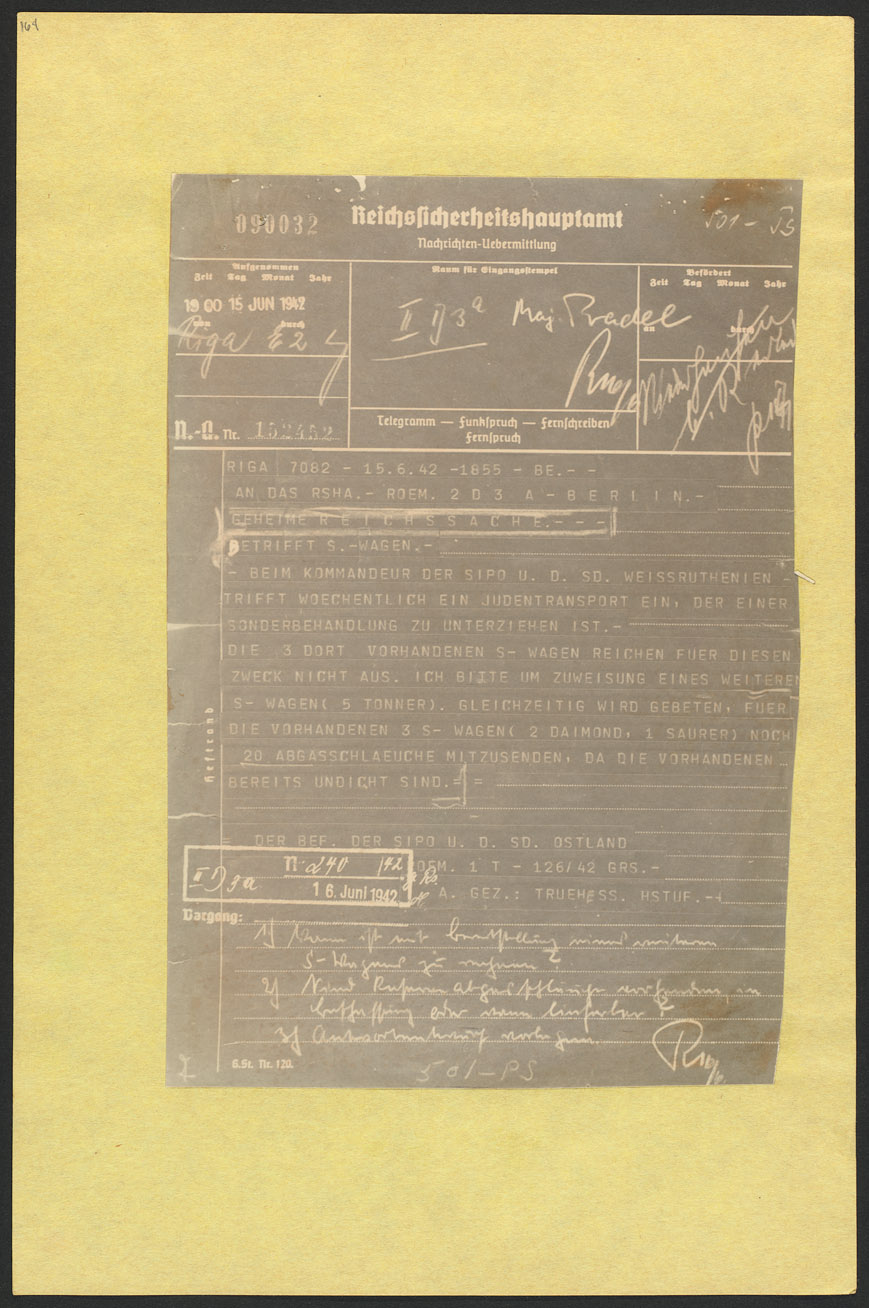 164
090032
Reichssicherheitshauptamt
501-PS
Nachrichten-Uebermittlung
Aufgenommen
Zeit Tag Monat Jahr
19 00 15 JUN 1942
von durch
Riga
Raum für Eingangsstempel
II D 3a Maj. Pradel
Befördert
Zeit Tag Monat Jahr
an durch
N.-Ü. Nr. 152452
Telegramm — Funkspruch — Fernschreiben
Fernspruch
RIGA 7082 - 15.6.42 -1855 - BE.- -
AN DAS RSHA.- ROEM. 2 D 3 A - B E R L I N.-
GEHEIME R E I C H S S A C H E.- - -
BETRIFFT S.-WAGEN.-
- BEIM KOMMANDEUR DER SIPO U. D. SD. WEISSRUTHENIEN -
TRIFFT WOECHENTLICH EIN JUDENTRANSPORT EIN, DER EINER
SONDERBEHANDLUNG ZU UNTERZIEHEN IST.-
DIE 3 DORT VORHANDENEN S- WAGEN REICHEN FUER DIESEN
ZWECK NICHT AUS. ICH BITTE UM ZUWEISUNG EINES WEITEREN
S- WAGEN( 5 TONNER). GLEICHZEITIG WIRD GEBETEN, FUER
DIE VORHANDENEN 3 S- WAGEN( 2 DAIMOND, 1 SAURER) NOCH
20 ABGASSCHLAEUCHE MITZUSENDEN, DA DIE VORHANDENEN
BEREITS UNDICHT SIND.= =
Heftrand
= DER BEF. DER SIPO U. D. SD. OSTLAND
ROEM. 1 T - 126/42 GRS.-
I. A. GEZ.: TRUEHESS. HSTUF.-+
II D 3a N: 240/42
16. Juni 1942
Vorgang:
1) Wann ist mit Bereitstellung eines weiteren
S-Wagens zu rechnen?
2) Sind Reserveabgasschläuche vorhanden, in
Beschaffung oder wann lieferbar?
3) Antwortentwurf vorlegen.
6.St. Nr. 120.
501-PS